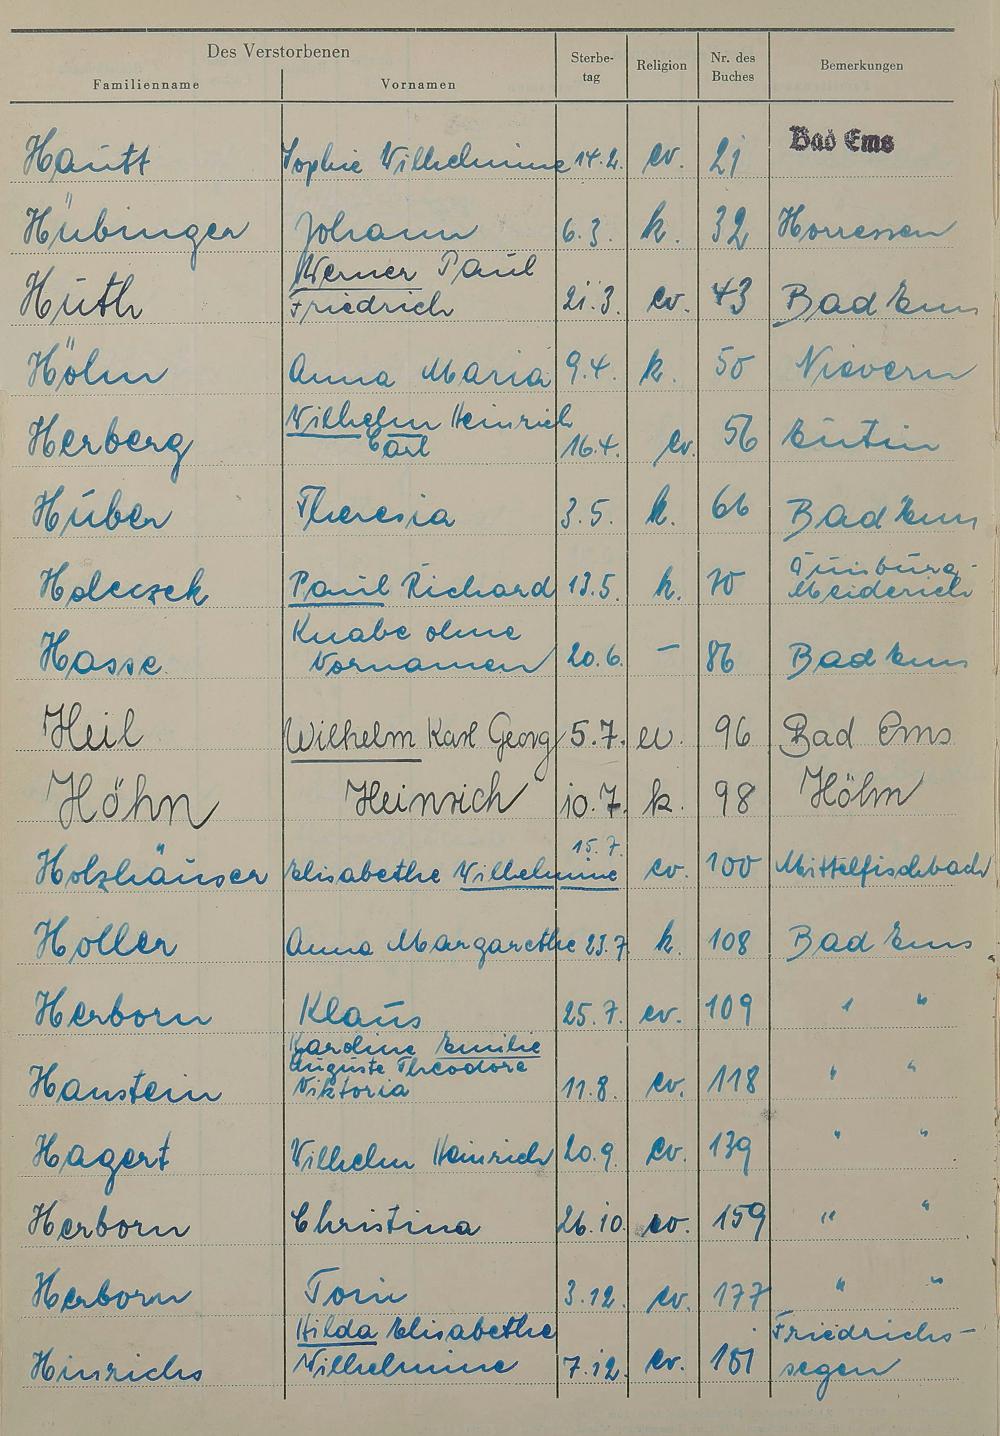 Des Verstorbenen
Familienname Vornamen Sterbe-tag Religion Nr. des Buches Bemerkungen
Hautt Sophie Wilhelmine 14.2. ev. 21 Bad Ems
Hübinger Johann 6.3. k. 32 Horressen
Huth Werner Paul Friedrich 21.3. ev. 43 Bad Ems
Höhn Anna Maria 9.4. k. 50 Nievern
Herberg Wilhelm Heinrich Carl 16.4. ev. 56 Eutin
Huber Theresia 3.5. k. 66 Bad Ems
Holeczek Paul Richard 13.5. k. 70 Duisburg-Meiderich
Hasse Knabe ohne Vornamen 20.6. — 86 Bad Ems
Heil Wilhelm Karl Georg 5.7. ev. 96 Bad Ems
Höhn Heinrich 10.7. k. 98 Höhn
Holzhäuser Elisabethe Wilhelmine 15.7. ev. 100 Mittelfischbach
Holler Anna Margarethe 23.7. k. 108 Bad Ems
Herborn Klaus 25.7. ev. 109 " "
Hanstein Karoline Emilie Auguste Theodore Viktoria 11.8. ev. 118 " "
Hagert Wilhelm Heinrich 20.9. ev. 139 " "
Herborn Christina 26.10. ev. 159 " "
Herborn Toni 3.12. ev. 177 " "
Hinrichs Hilda Elisabethe Wilhelmine 7.12. ev. 181 Friedrichs-segen